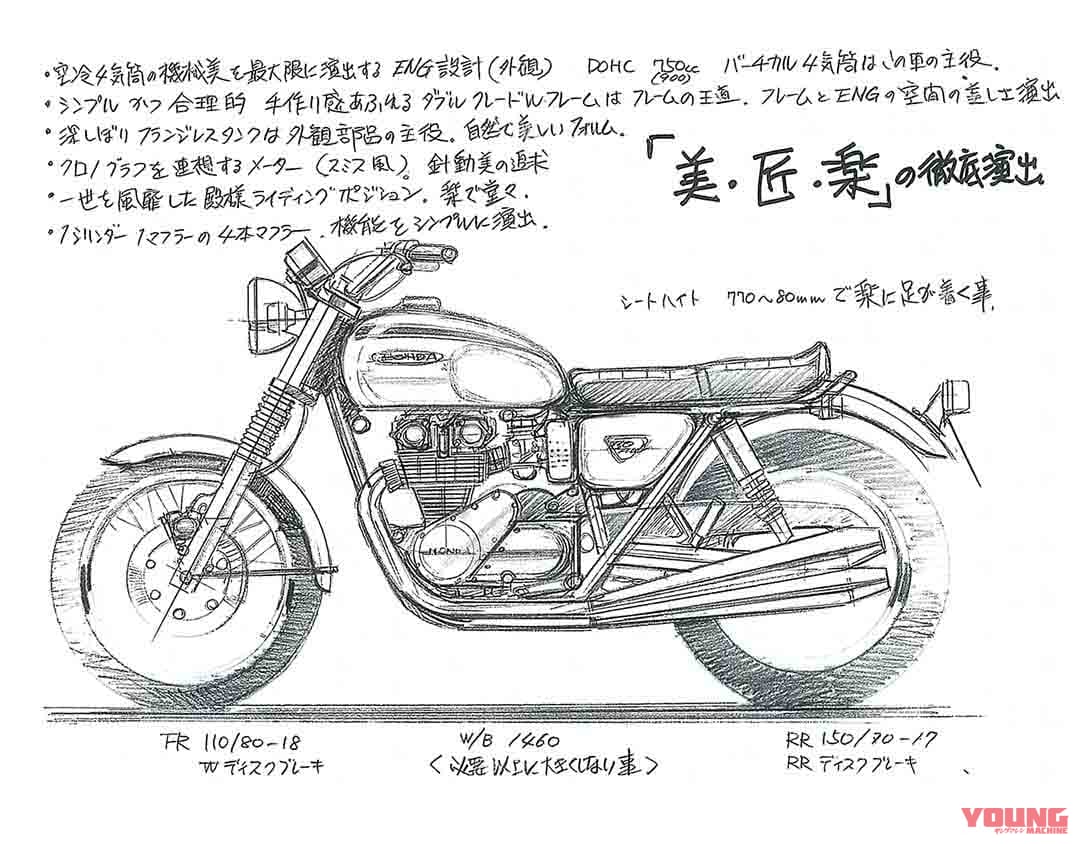 ・空冷4気筒の機械美を最大限に演出する ENG設計(外観) DOHC 750cc (900) バーチカル4気筒はこの車の主役.
・シンプルかつ合理的 手作り感あふれるダブルクレードルWフレームはフレームの王道. フレームとENGの空間の美しさ演出
・深しぼりフランジレスタンクは外観部品の主役. 自然で美しいフォルム.
・クロノグラフを連想するメーター (スミス風)。針動美の追求
・一世を風靡した殿様ライディングポジション. 楽で堂々.
・1シリンダー1マフラーの4本マフラー. 機能をシンプルに演出.
「美・匠・楽」の徹底演出
シートハイト 770〜80mmで楽に足が着く事.
HONDA
HONDA
FR 110/80-18
W/B 1460
RR 150/70-17
Wディスクブレーキ
<必要以上に大きくしない事>
RRディスクブレーキ
YOUNG
ヤングマシン MACHINE